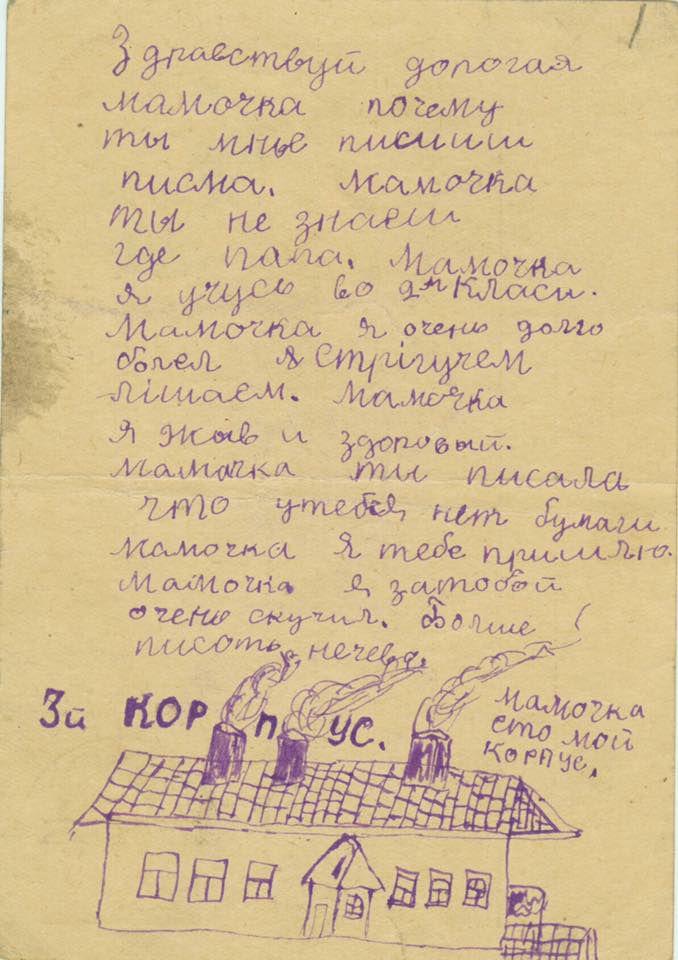 Здравствуй дорогая
мамочка почему
ты мнье писиш
писма. мамочка
ты не знаеш
где папа. Мамочка
я учусь во 2м Класи.
Мамочка я очень долго
болел Стрігучем
лішаєм. мамочка
я жив и здоровый.
мамочка ты писала
что утебя нет бумаги
мамочка я тебе пришлю.
мамочка я затобой
очень скучил. Болше
писать нечева.
3й КОРПУС.
мамочка
єто мой
корпус.